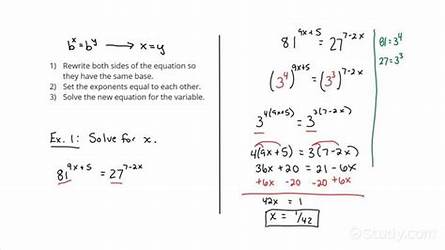 bˣ = bʸ ⟶ x = y
1) Rewrite both sides of the equation so
they have the same base.
2) Set the exponents equal to each other.
3) Solve the new equation for the variable.
Ex. 1: Solve for x.
81^(9x+5) = 27^(7-2x)
81^(9x+5) = 27^(7-2x)
(3⁴)^(9x+5) = (3³)^(7-2x)
3^(4(9x+5)) = 3^(3(7-2x))
4(9x+5) = 3(7-2x)
36x + 20 = 21 - 6x
+6x -20 -20 +6x
42x = 1
x = 1/42
81 = 3⁴
27 = 3³
Study.com